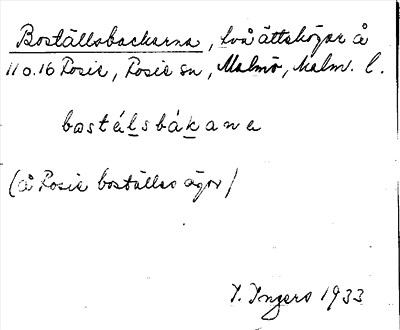 Boställsbackarna, två ättehögar å
11 o. 16 Rosie, Rosie sn, Malmö, Malm. l.
bostálsbákana
(å Rosie boställes ägor)
I. Ingers 1933